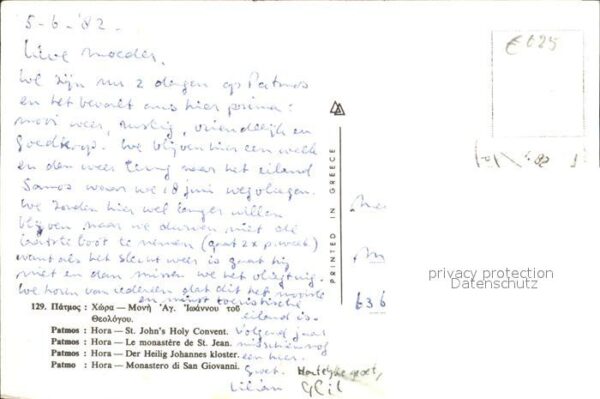 5-6-'82
Lieve moeder,
We zijn nu 2 dagen op Patmos
en het bevalt ons hier prima:
mooi weer, rustig, vriendelijk en
goedkoop. We blijven hier een week
en dan weer terug naar het eiland
Samos waar we 18 juni wegvliegen.
We zouden hier wel langer willen
blijven maar we durven niet de
laatste boot te nemen (gaat 2x p. week)
want als het slecht weer is gaat hij
niet en dan missen we het vliegtuig.
We horen van iedereen dat dit het mooiste
en minst toeristische
eiland is.
Volgend jaar
misschien nog
een hier.
Groet. Hartelijke groet,
Lilian
129. Πάτμος : Χώρα — Μονή Ἁγ. Ἰωάννου τοῦ
Θεολόγου.
Patmos : Hora — St. John's Holy Convent.
Patmos : Hora — Le monastére de St. Jean.
Patmos : Hora — Der Heilig Johannes kloster.
Patmo : Hora — Monastero di San Giovanni.
PRINTED IN GREECE
636
privacy protection
Datenschutz